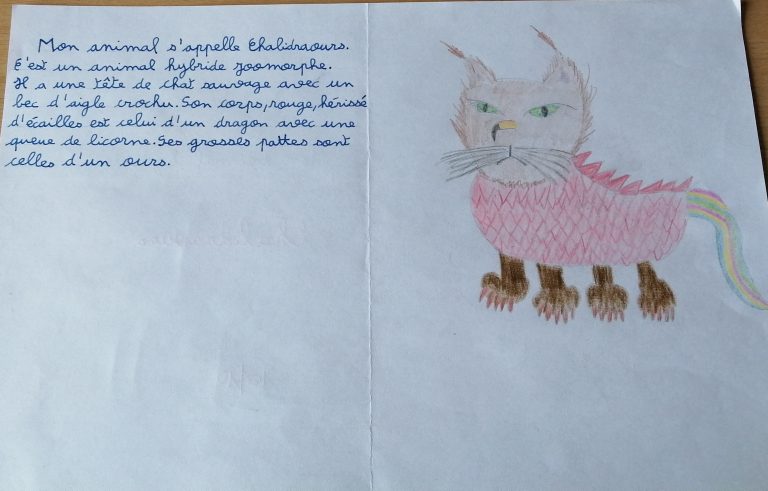 Mon animal s'appelle Chalidraours.
C'est un animal hybride zoomorphe.
Il a une tête de chat sauvage avec un
bec d'aigle crochu. Son corps, rouge, hérissé
d'écailles est celui d'un dragon avec une
queue de licorne. Ses grosses pattes sont
celles d'un ours.